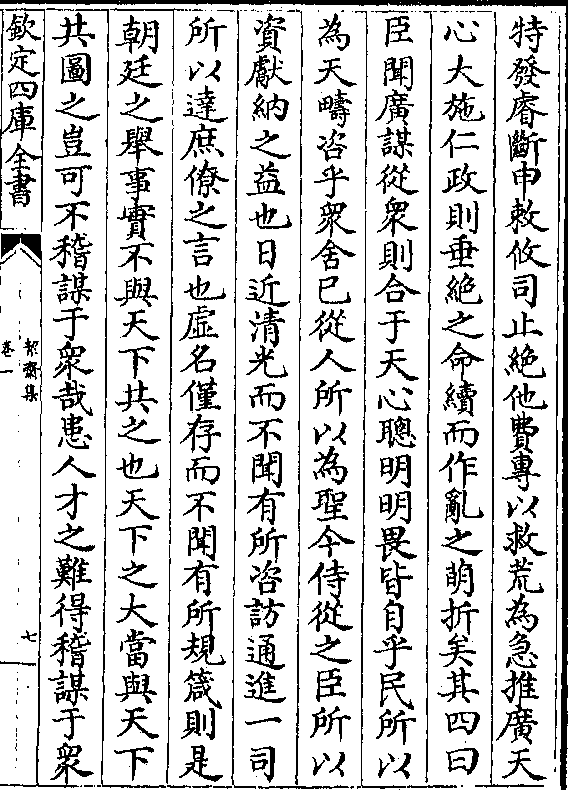 特發睿斷申敕攸司止絶他費専以救荒為急推廣天
心大施仁政則垂絶之命續而作亂之萌折矣其四曰
臣聞廣謀從衆則合于天心聰明明畏皆自乎民所以
為天疇咨乎衆舍已從人所以為聖今侍從之臣所以
資獻納之益也日近清光而不聞有所咨訪通進一司
所以達庶僚之言也虚名僅存而不聞有所規箴則是
朝廷之舉事實不與天下共之也天下之大當與天下
共圖之豈可不稽謀于衆哉患人才之難得稽謀于衆
欽定四庫全書
絜齋集
卷一
七